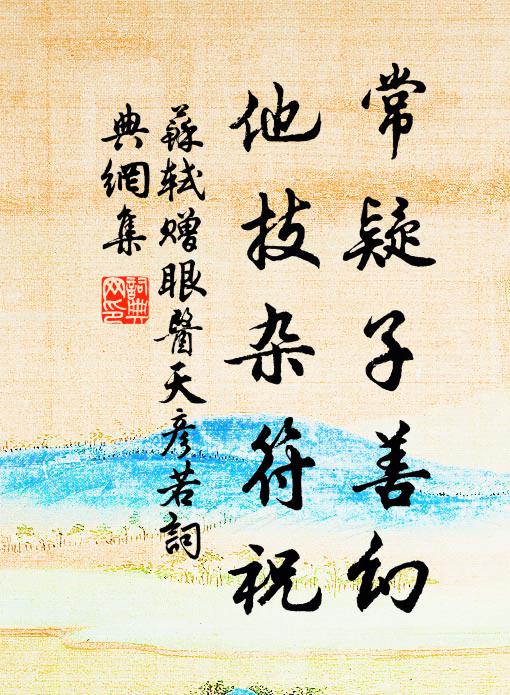 常疑子善幻
他技杂符祝
蘇軾赠眼醫天彦若詞
典網集
詞典网印